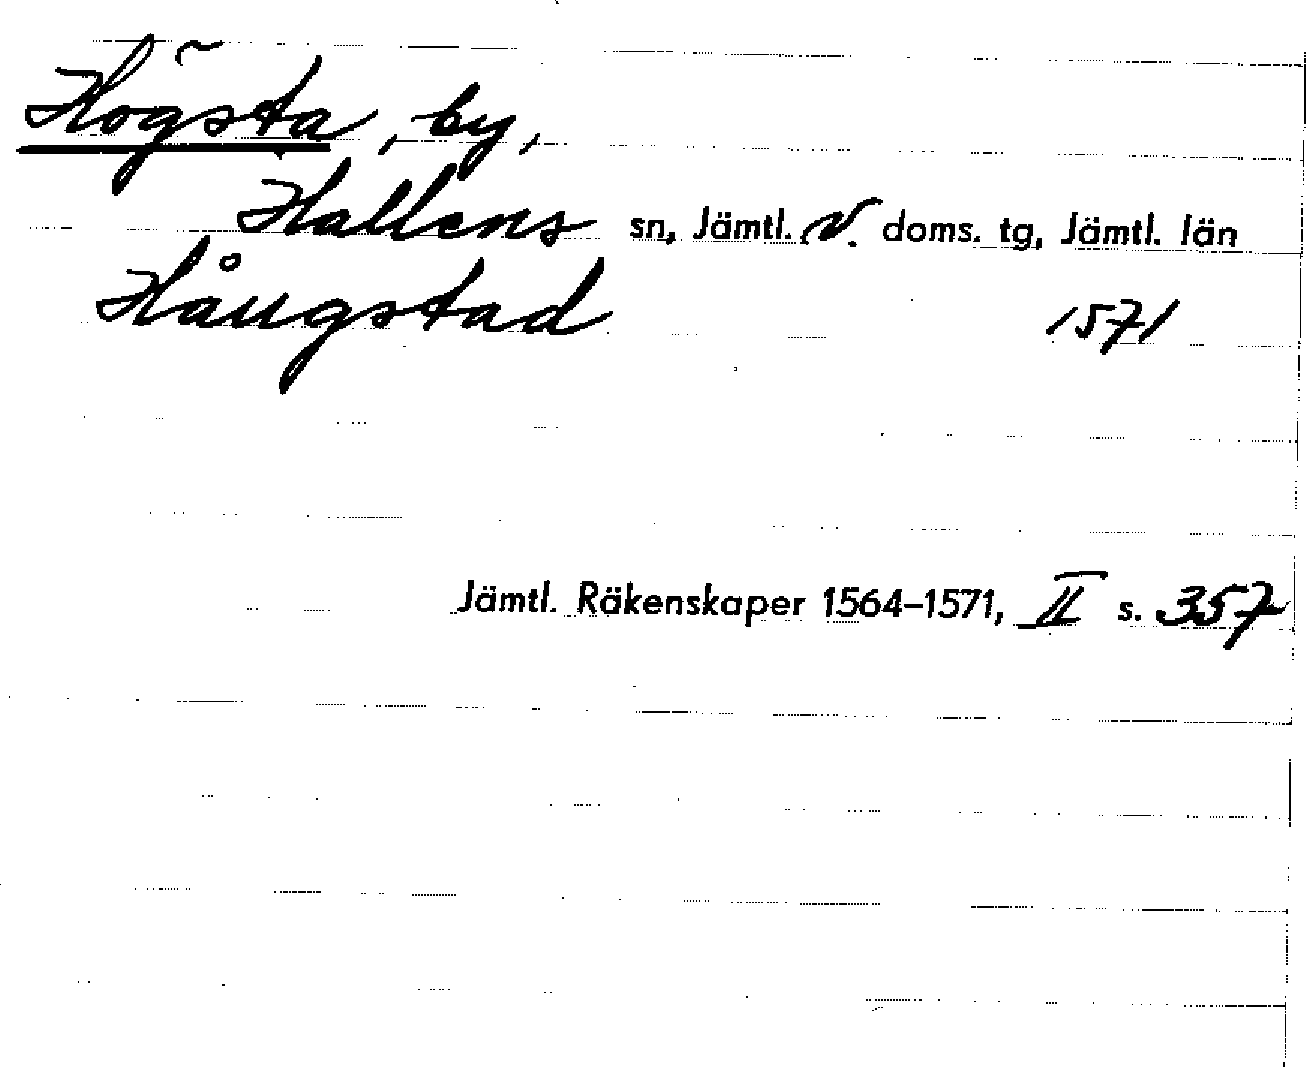 Högsta, by,
Hallens sn, Jämtl. V. doms. tg, Jämtl. län
Håugstad 1571
Jämtl. Räkenskaper 1564–1571, II s. 357